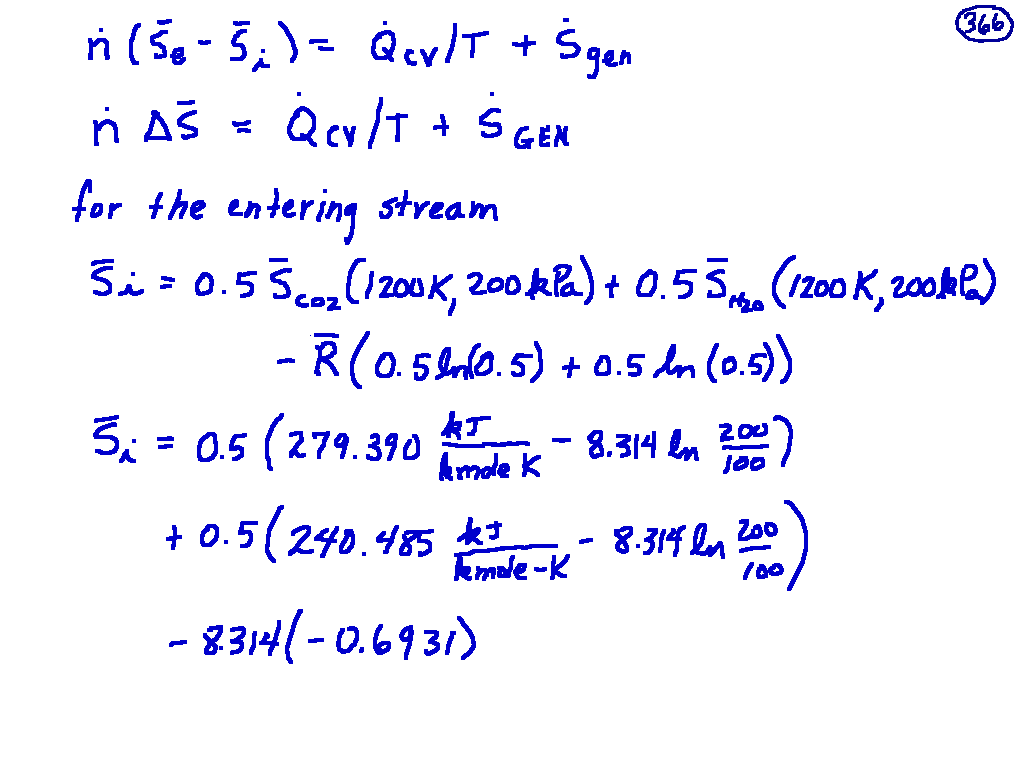 366
ṅ (S̄e - S̄i) = Q̇cv/T + Ṡgen
ṅ ΔS̄ = Q̇cv/T + ṠGEN
for the entering stream
S̄i = 0.5 S̄CO2 (1200K, 200kPa) + 0.5 S̄H2O (1200K, 200kPa)
- R̄ (0.5 ln(0.5) + 0.5 ln (0.5))
S̄i = 0.5 (279.390 kJ/kmole K - 8.314 ln 200/100)
+ 0.5 (240.485 kJ/kmole-K - 8.314 ln 200/100)
- 8.314 (-0.6931)